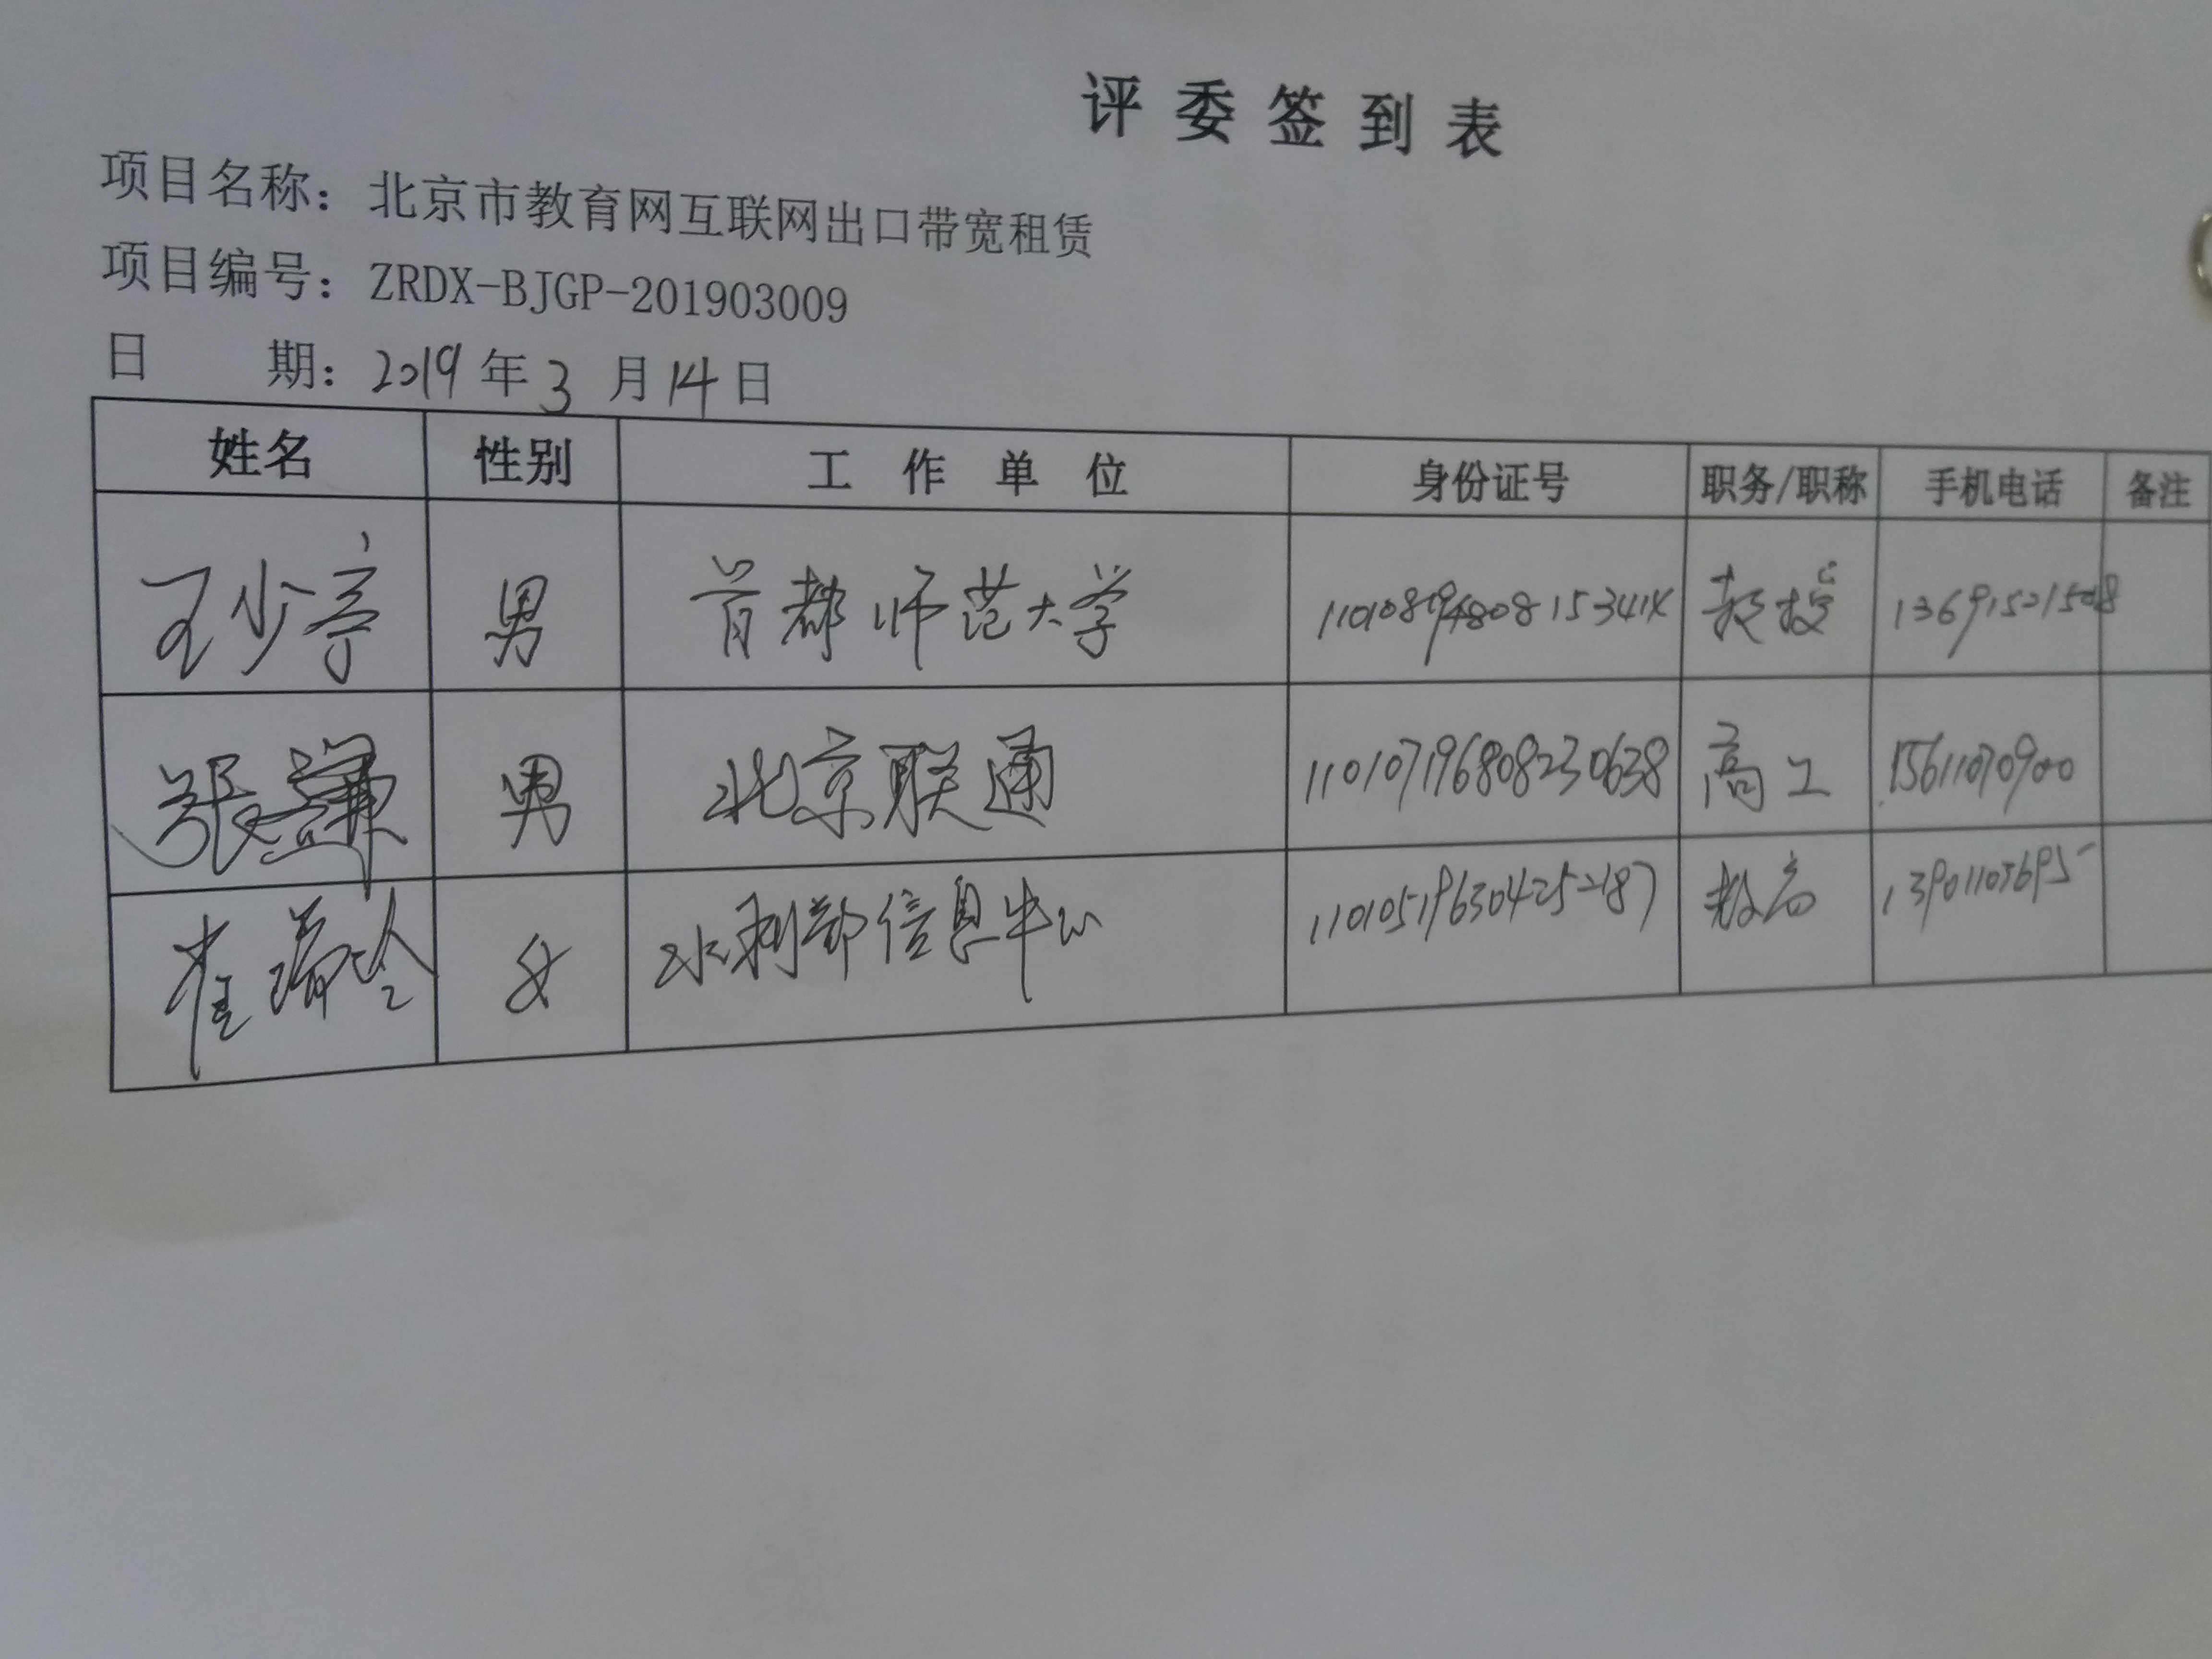 评委签到表
项目名称：北京市教育网互联网出口带宽租赁
项目编号：ZRDX-BJGP-201903009
日 期：2019年3月14日
姓名 性别 工作单位 身份证号 职务/职称 手机电话 备注
王少亭 男 首都师范大学 教授
张谦 男 北京联通 110107196808230638 高工 15611070900
崔瑞玲 女 水利部信息中心 教高